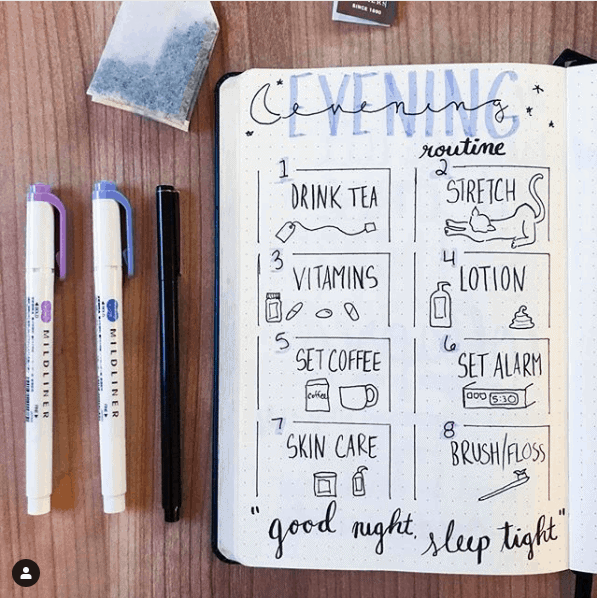 SINCE 1890
EVENING
evening
routine
1
DRINK TEA
2
STRETCH
3
VITAMINS
4
LOTION
5
SET COFFEE
coffee
6
SET ALARM
5:30
7
SKIN CARE
8
BRUSH/FLOSS
"good night, sleep tight"
MILDLINER
MILDLINER